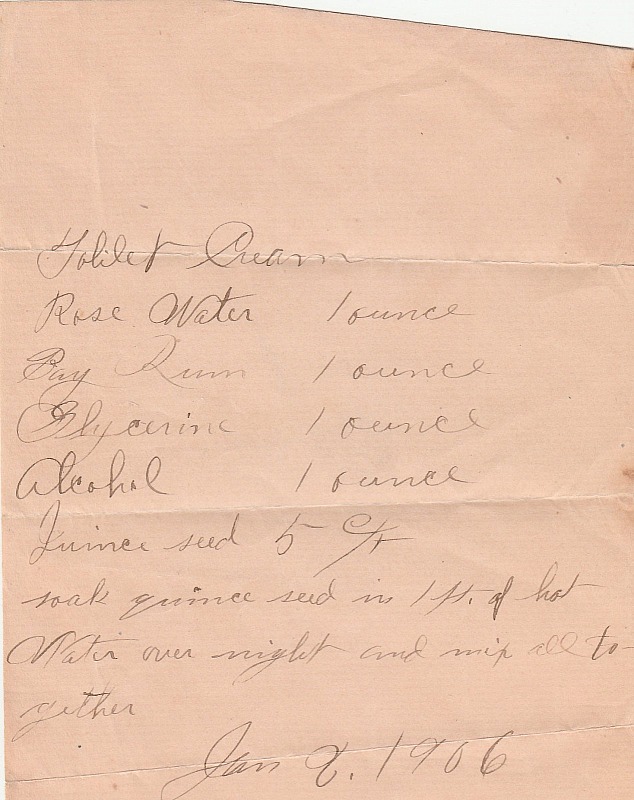 Toilet Cream
Rose Water 1 ounce
Bay Rum 1 ounce
Glycerine 1 ounce
Alcohol 1 ounce
Quince seed 5 ct
soak quince seed in 1 pt. of hot
Water over night and mix all to-
gether
Jan 2. 1906